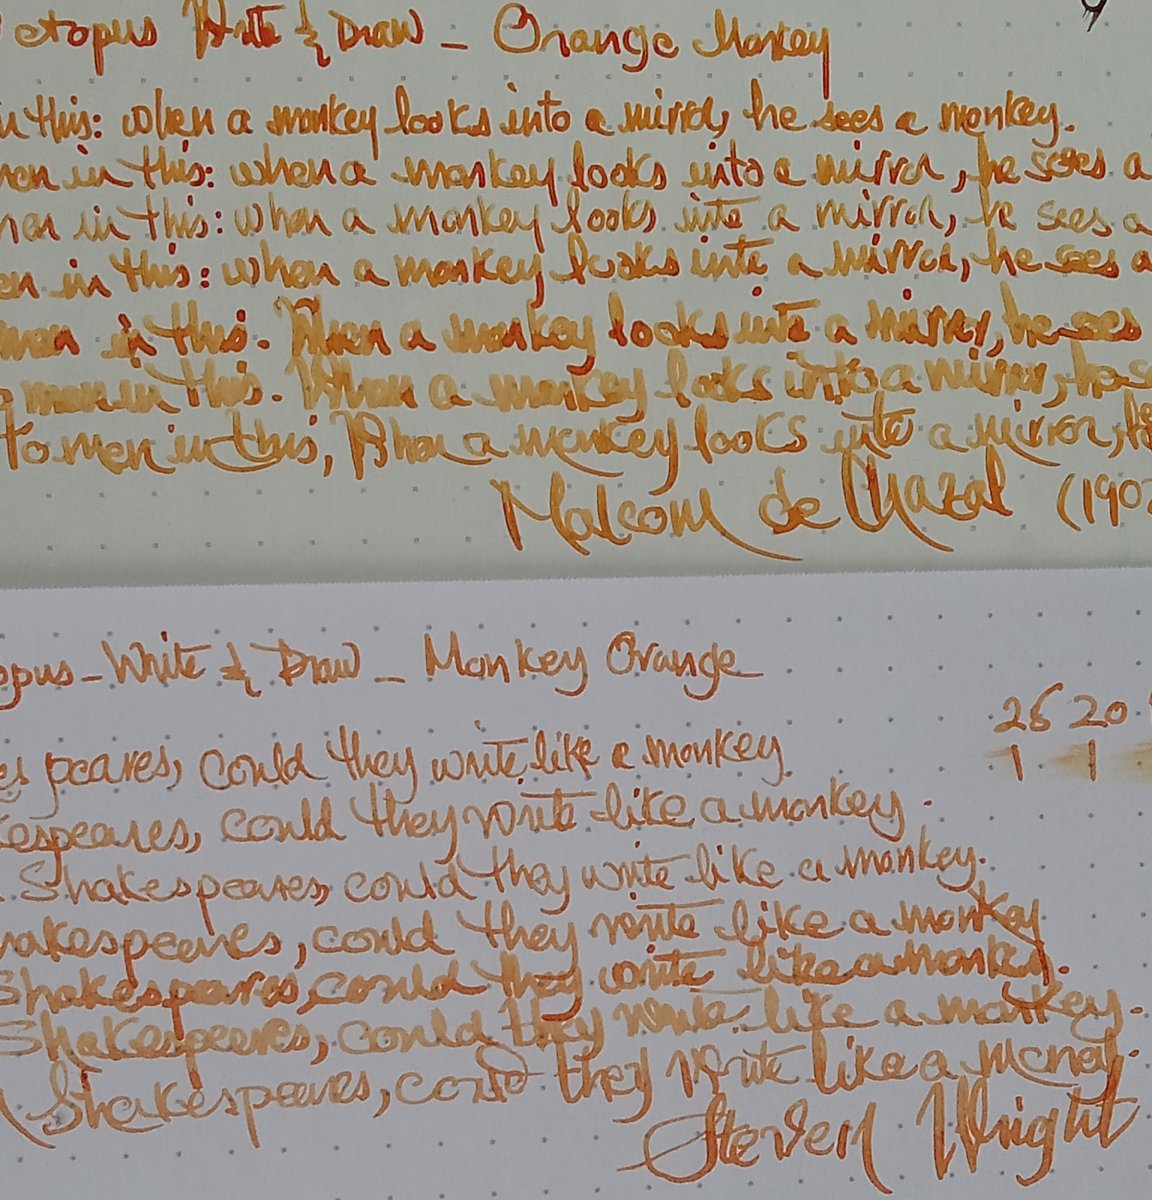 ctopus Write & Draw - Orange Monkey
in this: when a monkey looks into a mirror, he sees a monkey.
men in this: when a monkey looks into a mirror, he sees a
men in this: when a monkey looks into a mirror, he sees a
en in this: when a monkey looks into a mirror, he sees a
men in this. When a monkey looks into a mirror, he sees
men in this. When a monkey looks into a mirror, he s
To men in this, When a monkey looks into a mirror, he
Malcom de Chazal (190
opus - Write & Draw - Monkey Orange
26 20
1 1
es peares, could they write like a monkey
kespeares, could they write like a monkey.
Shakespeares, could they write like a monkey.
hakespeares, could they write like a monkey
Shakespeares, could they write like a monkey.
Shakespeares, could they write like a monkey.
Shakespeares, could they write like a money.
Steven Wright